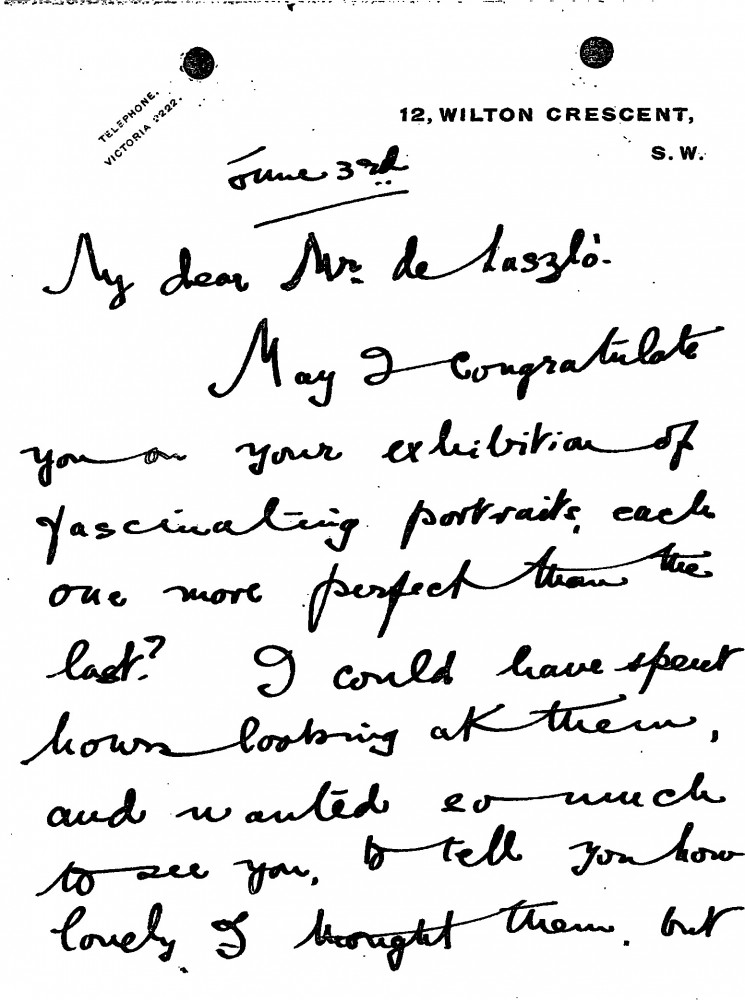 TELEPHONE.
VICTORIA 2222.
12, WILTON CRESCENT,
S.W.
June 3rd
My dear Mr. de Laszló.
May I congratulate
you on your exhibition of
fascinating portraits, each
one more perfect than the
last? I could have spent
hours looking at them,
and wanted so much
to see you, to tell you how
lovely I thought them. but